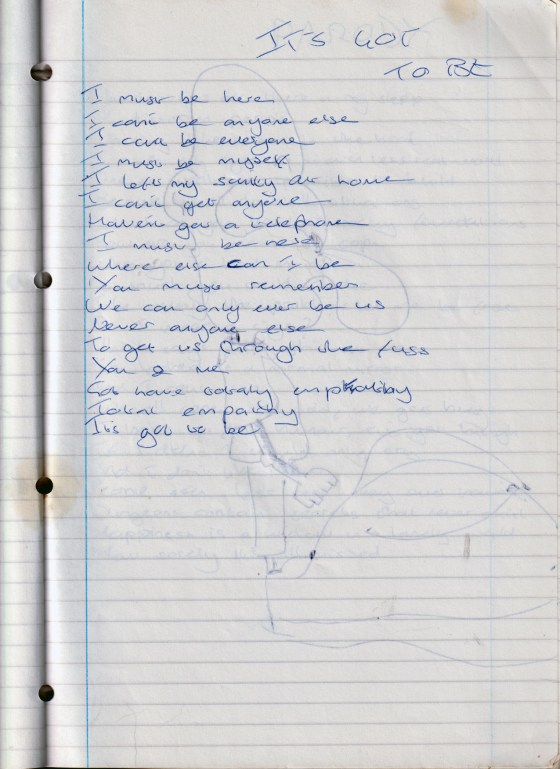 IT'S GOT
TO BE
I must be here
I can't be anyone else
I can't be everyone
I must be myself
I left my sanity at home
I can't get anyone
Haven't got a telephone
I must be here
Where else can I be
You must remember
We can only ever be us
Never anyone else
To get us through the fuss
You & me
Got have totally
Total empathy
It's got to be